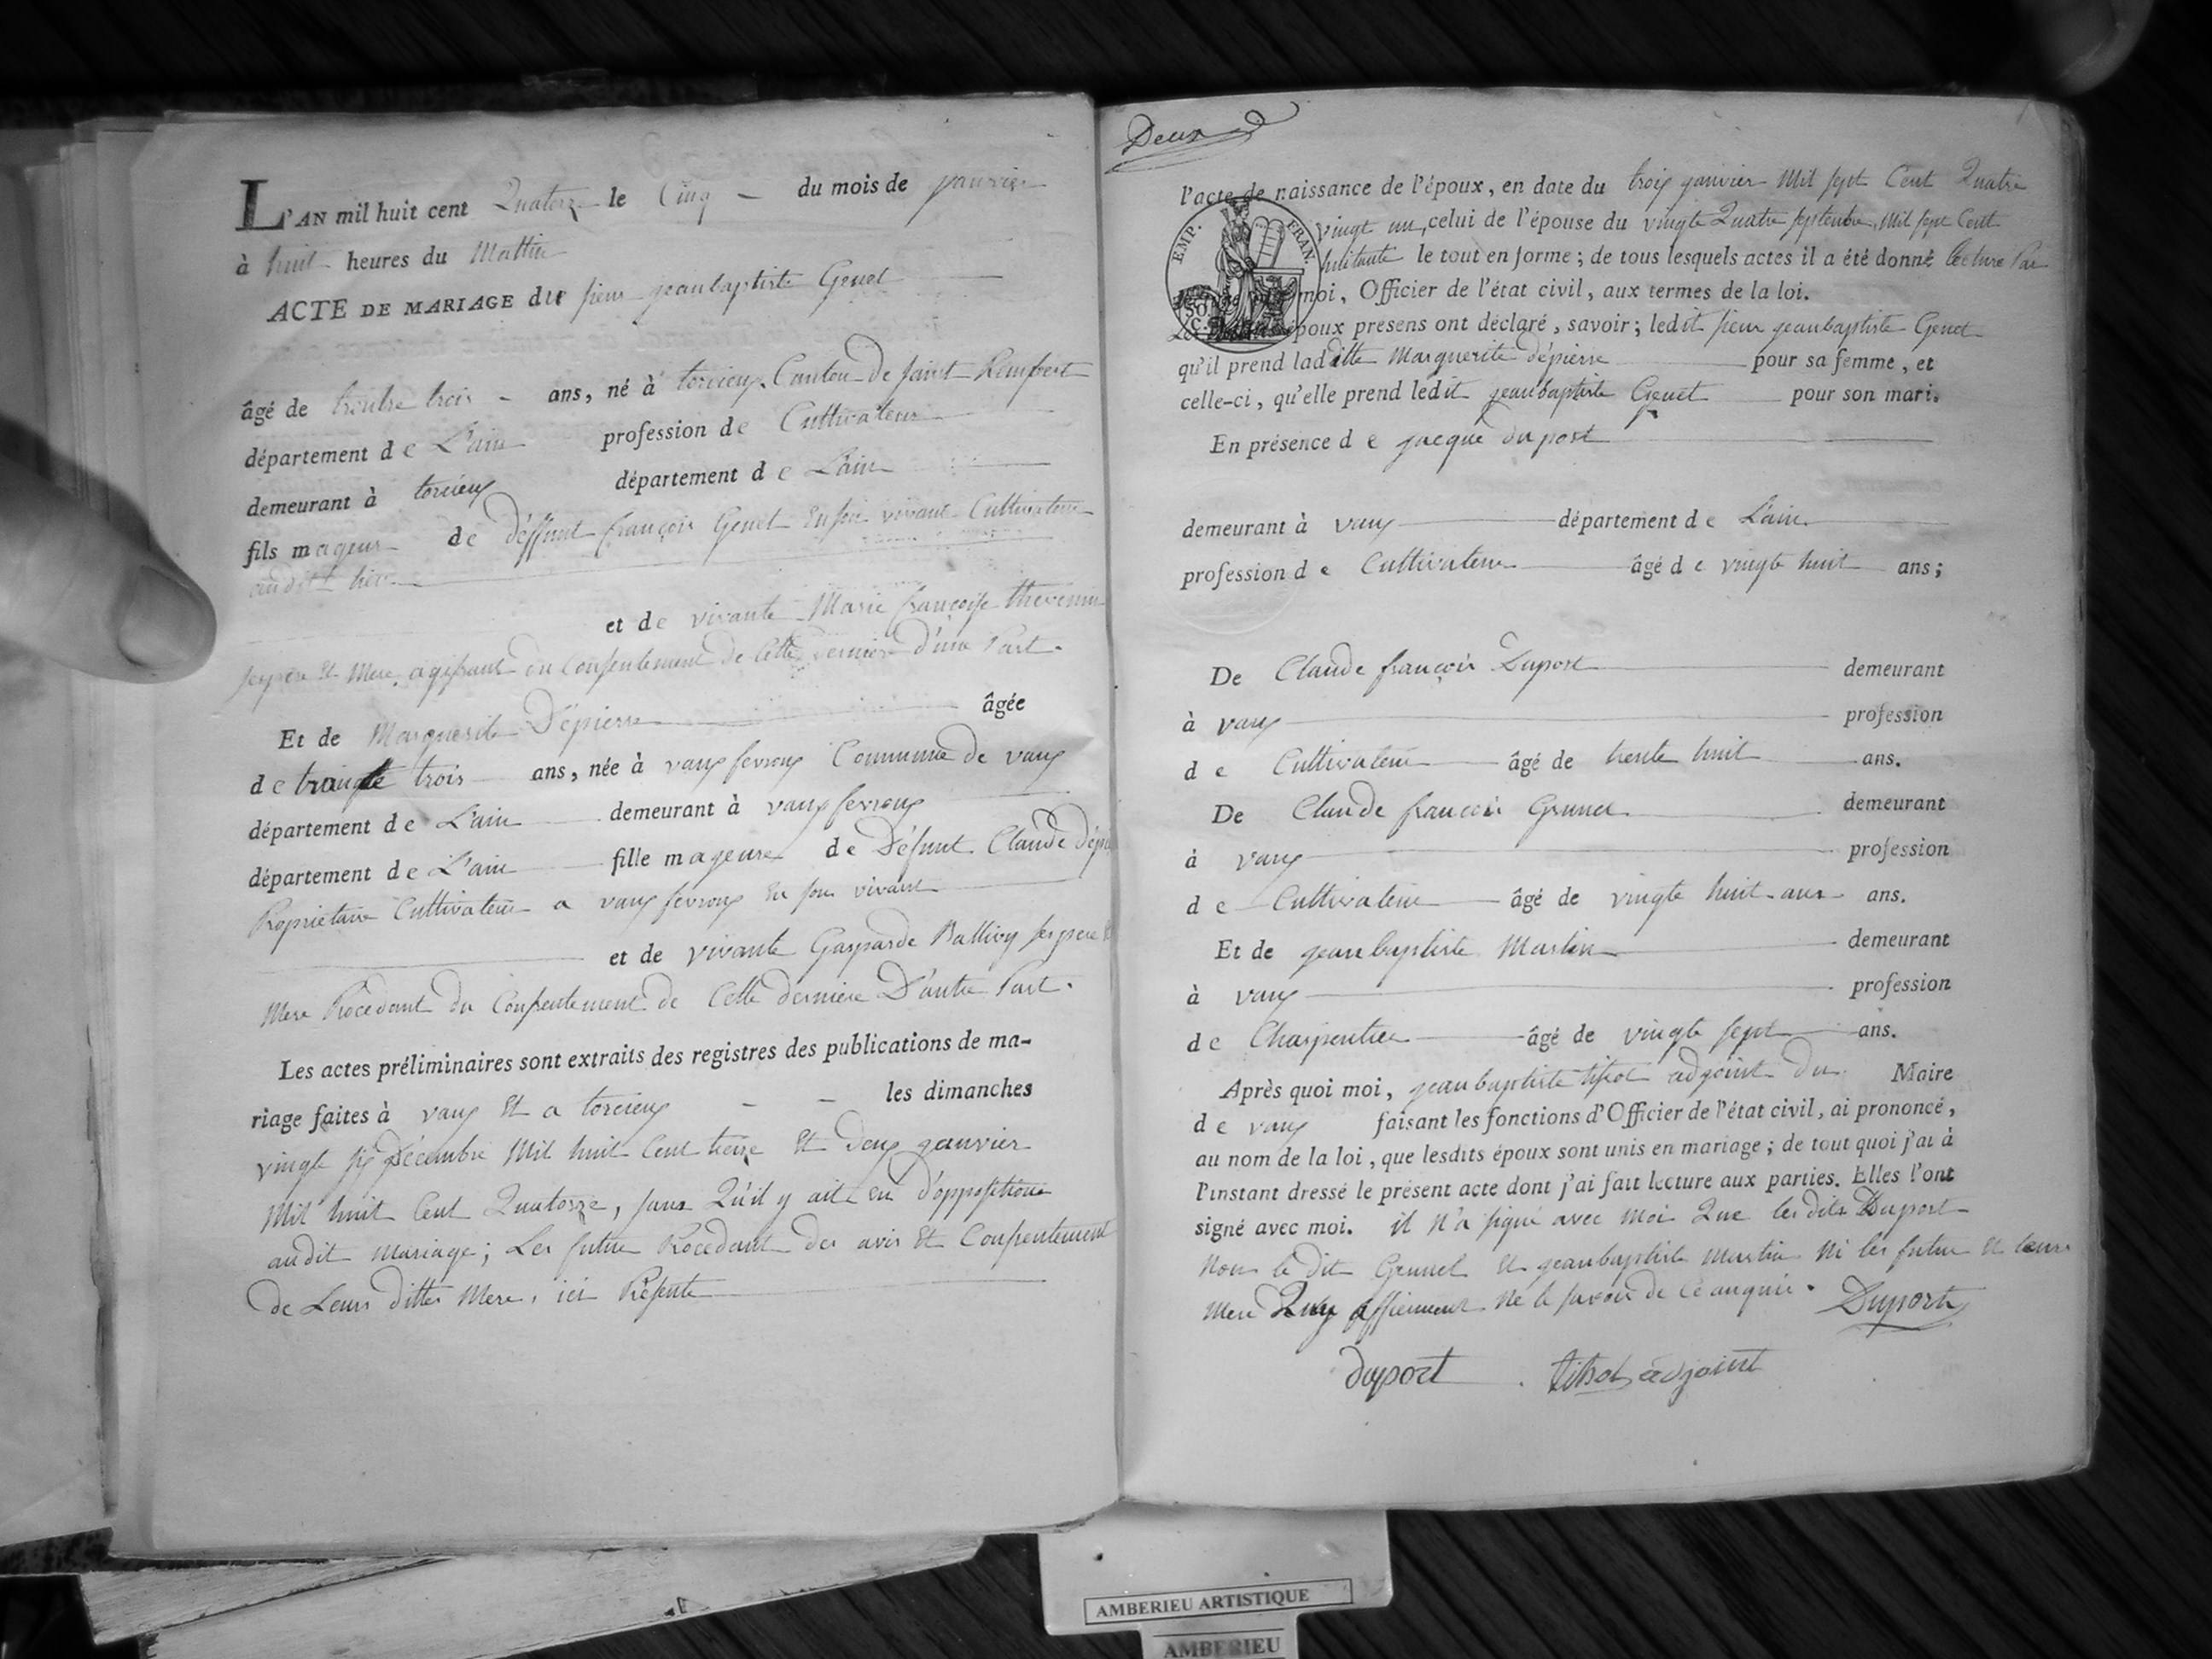 L'AN mil huit cent Quatorze le Cinq - du mois de janvier
à huit heures du Mattin
ACTE DE MARIAGE du sieur jeanbaptiste Genet
âgé de trentre trois - ans, né à torcieux Canton de saint Rembert
département de L'ain profession de Cultivateur
demeurant à torcieux département de L'ain
fils majeur de Déffunt françois Genet En son vivant Cultivateur
audit lieu
et de vivante Marie françoise
père et Mere, agissant du Consentement de Cette derniere d'une Part.
Et de Marguerite Dépierre âgée
de trois ans, née à vaux fevroux Commune de vaux
département de L'ain demeurant à vaux fevroux
département de L'ain fille majeure de Défunt Claude
Propriétaire Cultivateur a vaux fevroux en son vivant
et de vivante Gasparde Ballivy ses pere
Mere Procedant du Consentement de Cette derniere D'autre Part.
Les actes préliminaires sont extraits des registres des publications de ma-
riage faites à vaux Et a torcieux - - les dimanches
vingt six Décembre Mil huit Cent treize Et deux janvier
Mil huit Cent Quatorze, sans Qu'il y aite eu d'oppositions
audit mariage; Les futur Procedant des avis Et Consentement
de Leurs dittes Mere, ici Présente
Deux
l'acte de naissance de l'époux, en date du trois janvier Mil sept Cent Quatre
vingt un, celui de l'épouse du vingte Quatre septembre, Mil sept Cent
huitante le tout en forme; de tous lesquels actes il a été donné lecture Par
moi, Officier de l'état civil, aux termes de la loi.
EMP. FRAN.
50 C.
époux présens ont déclaré, savoir; ledit sieur jeanbaptiste Genet
qu'il prend laditte Marguerite dépierre pour sa femme, et
celle-ci, qu'elle prend ledit jeanbaptiste Genet pour son mari.
En présence de jacque duport
demeurant à vaux département de L'ain
profession de Cultivateur âgé de vingte huit ans;
De Claude françois Duport demeurant
à vaux profession
de Cultivateur âgé de trente huit ans.
De Claude francois Grunel demeurant
à vaux profession
de Cultivateur âgé de vingte huit ans ans.
Et de jeanbaptiste Martin demeurant
à vaux profession
de Charpentier âgé de vingte sept ans.
Après quoi moi, jeanbaptiste adjoint du Maire
de vaux faisant les fonctions d'Officier de l'état civil, ai prononcé,
au nom de la loi, que lesdits époux sont unis en mariage; de tout quoi j'ai à
l'instant dressé le présent acte dont j'ai fait lecture aux parties. Elles l'ont
signé avec moi. il N'a signé avec Moi Que les dits Duport
Non le dit Grunel et jeanbaptiste martin Ni les futur et leurs
mere Quy affirment Ne le savoir de Ce anquis. Duport
duport adjoint
AMBERIEU ARTISTIQUE
AMBERIEU